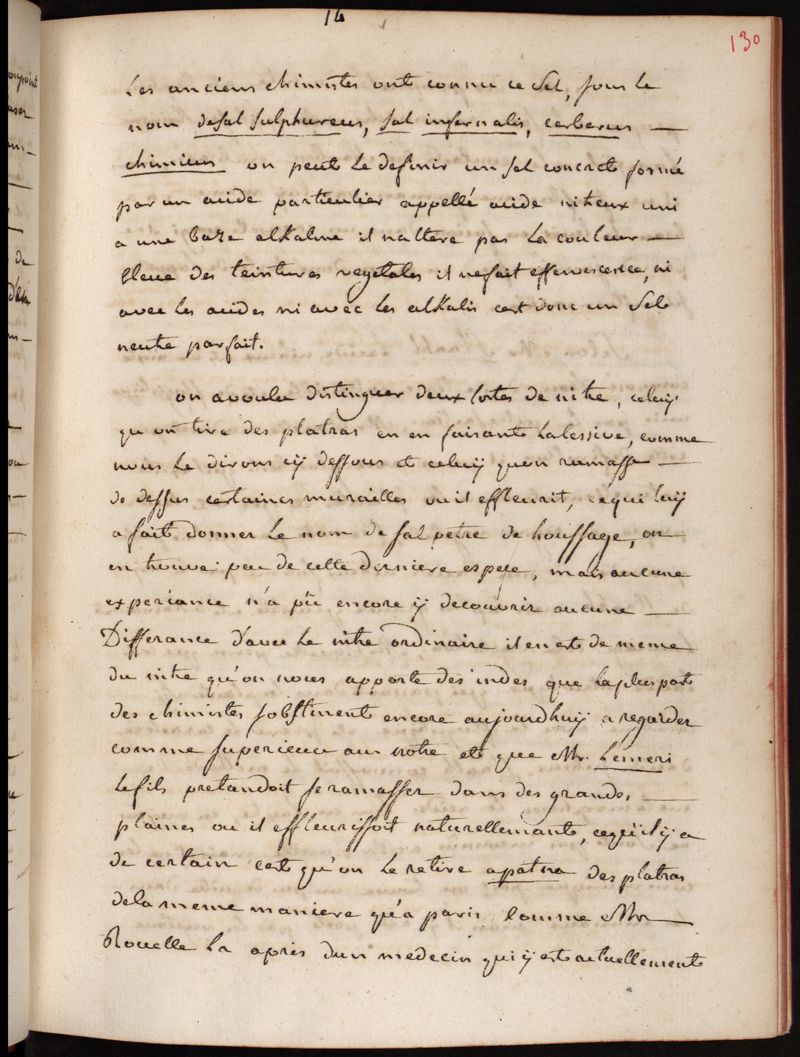 14
130
Les anciens chimistes ont connu ce Sel, sous le
nom desal sulphureus, sal infernalis, cerberus —
chimicus on peut le definir un sel concret formé
par un acide particulier appellé acide nitreux uni
a une baze alkaline il naltere pas la couleur —
bleue des teintures vegetales il nefait effervescence, ni
avec les acides ni avec les alkalis cest donc un Sel
neutre parfait.
on avoulu distinguer deux sortes de nitre, celuy
qu'on tire des platras en en faisant lalessive, comme
nous le dirons cÿ dessous et celuÿ quon ramasse —
de dessus certaines murailles ou il effleurit, cequi luÿ
a fait donner le nom de sal petre de houssage, on
en trouve peu de cette derniere espece, mais aucune
experiance n'a pû encore ÿ decouvrir aucune —
Differance d'avec le nitre ordinaire il en est de meme
du nitre qu'on nous apporte des indes que laplus part
des chimistes sobstinent encore aujourdhuÿ a regarder
comme superieur au notre et que Mr. Lémeri
le fils pretandoit se ramasser dans des grandes —
plaines ou il effleurissoit naturellement, cequ'il ÿ a
de certain cest qu'on le retire a patna des platras
dela meme maniere qu'a paris comme Mr —
Rouelle la apris dun medecin qui ÿ est actuellement